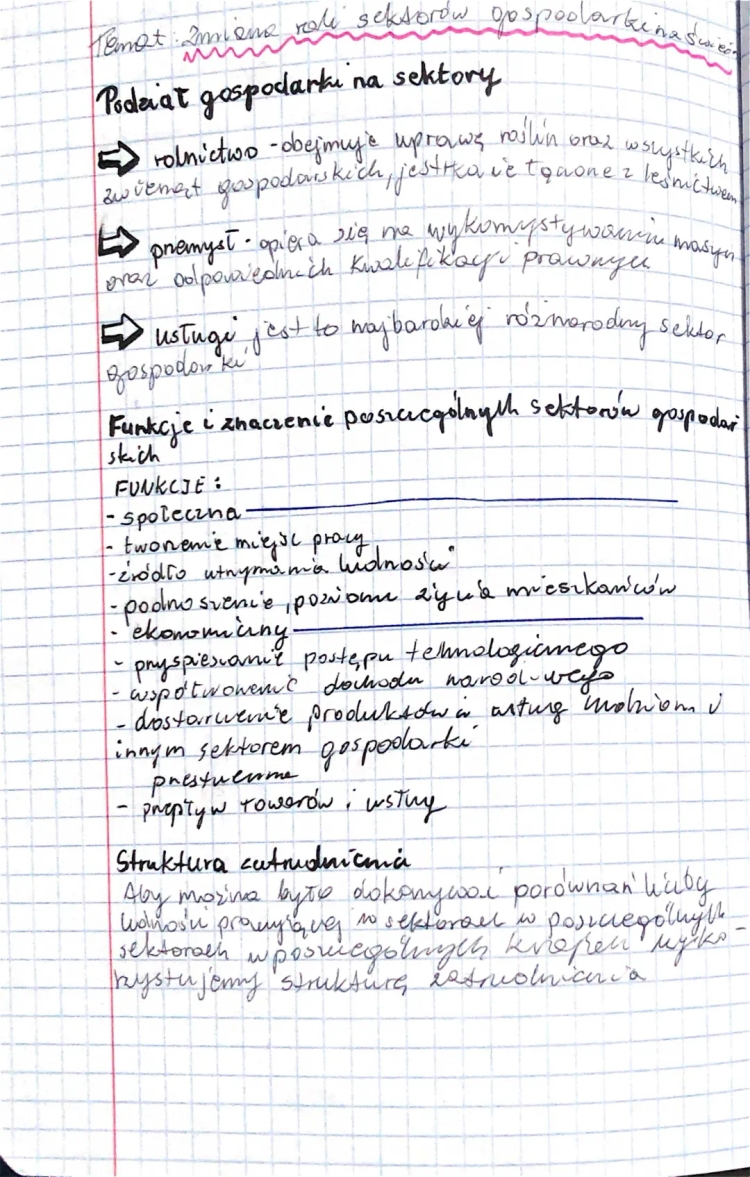 Temat: Zmiana roli sektorów gospodarki na świecie
Podział gospodarki na sektory
⇨ rolnictwo - obejmuje uprawę roślin oraz wszystkich
zwierząt gospodarskich, jest łączone z leśnictwem
⇨ przemysł - opiera się na wykorzystywaniu maszyn
oraz odpowiednich kwalifikacji prawnych
⇨ usługi jest to najbardziej różnorodny sektor
gospodarki
Funkcje i znaczenie poszczególnych sektorów gospodar
skich
FUNKCJE:
- społeczna
- tworzenie miejsc pracy
- źródło utrzymania ludności
- podnoszenie, poziomu życia mieszkańców
- ekonomiczny
- przyspieszanie postępu tehnologicznego
- współtworzenie dochodu narodowego
- dostarczenie produktów i usług ludziom i
innym sektorem gospodarki
przestrzenne
- przepływ towarów i usług
Struktura zatrudnienia
Aby można było dokonywać porównań liczby
ludności pracującej w sektorach w poszczególnych
sektorach w poszczególnych krajach wyko-
rzystujemy strukturę zatrudnienia